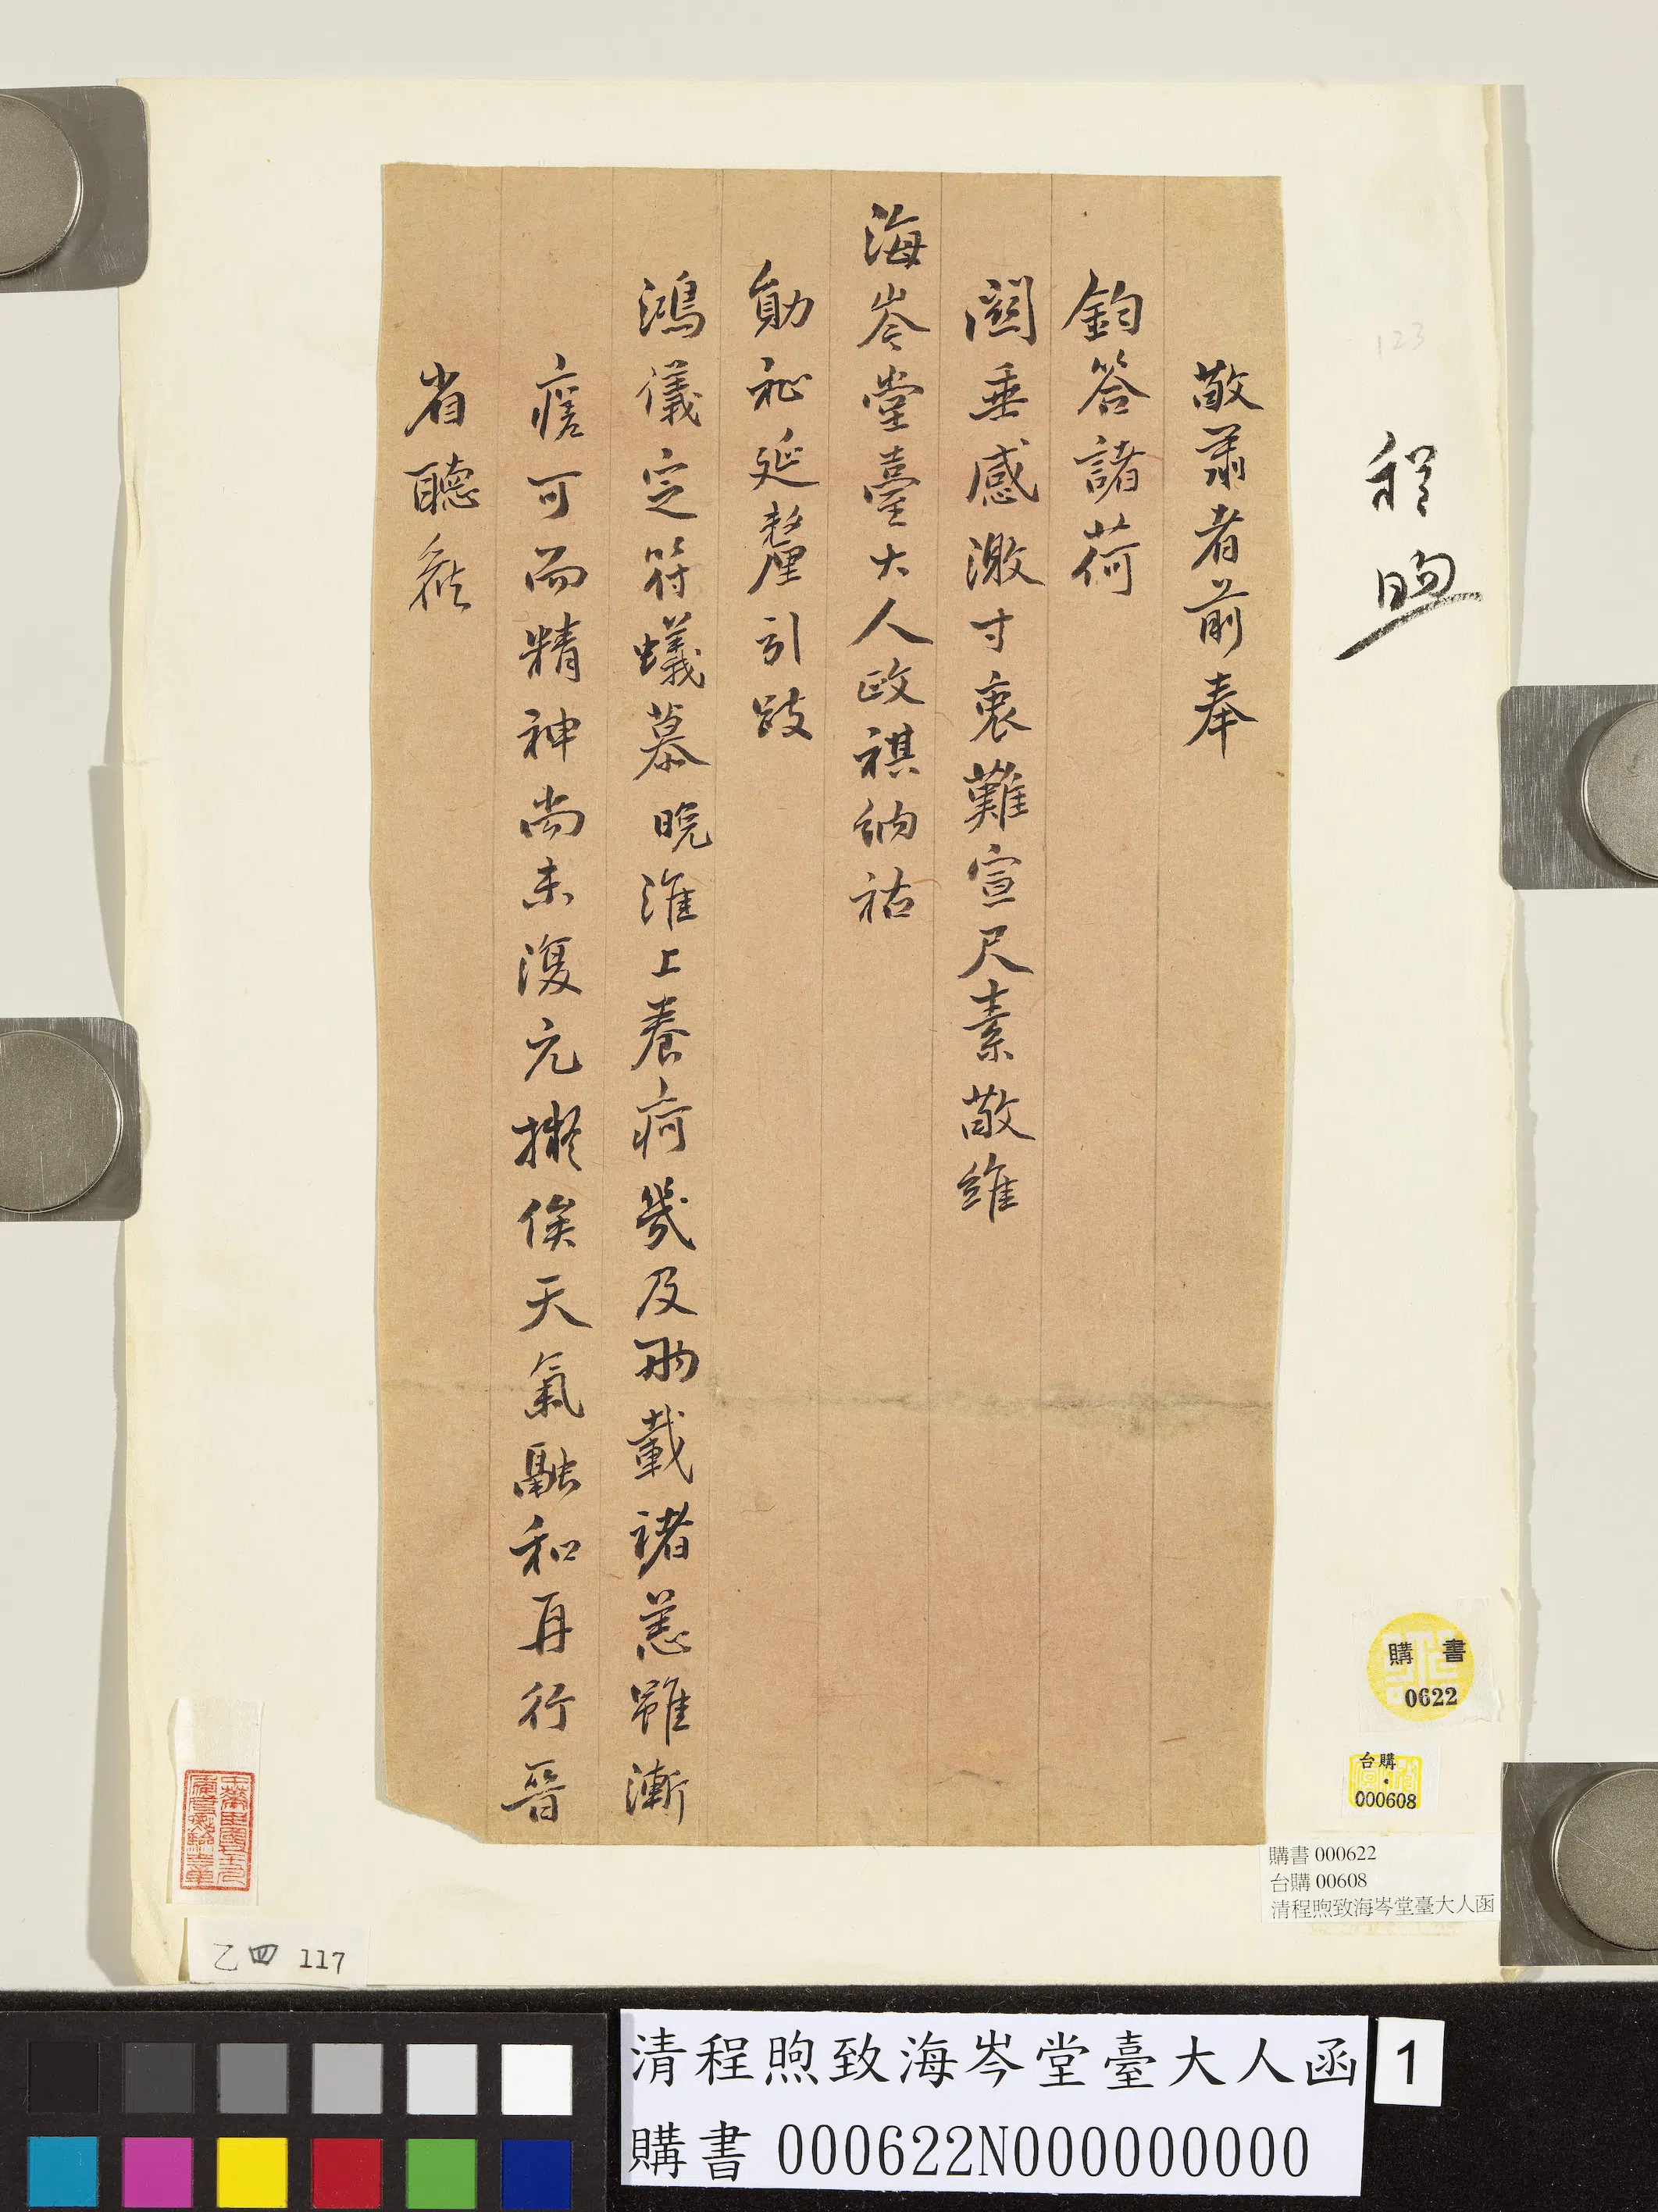 程煦
123
敬肅者前奉
鈞答諸荷
關垂感激寸衷難宣尺素敬維
海岑堂臺大人政祺納祜
勛祉延釐引跂
鴻儀定符蟻慕晚淮上養疴幾及兩載諸恙雖漸
痊可而精神尚未復元擬俟天氣融和再行晉
省聽鼓
購書
0622
台購
000608
購書 000622
台購 00608
清程煦致海岑堂臺大人函
乙四 117
清程煦致海岑堂臺大人函
購書 000622N000000000
1